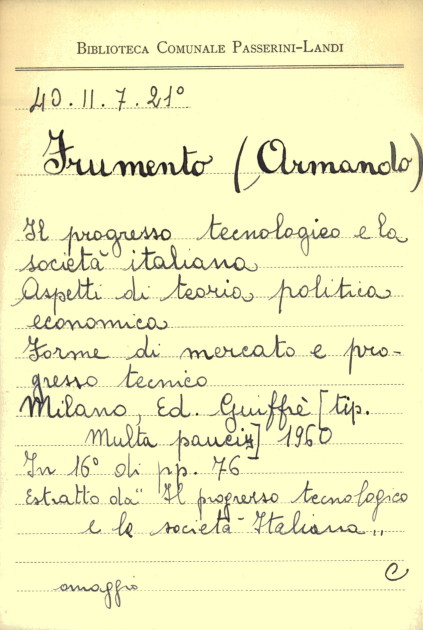 BIBLIOTECA COMUNALE PASSERINI-LANDI
40.II.7.21°
Frumento (Armando)
Il progresso tecnologico e la
società italiana
Aspetti di teoria politica
economica
Forme di mercato e pro-
gresso tecnico
Milano, Ed. Guiffrè [tip.
Multa paucis] 1960
In 16° di pp. 76
Estratto da "Il progresso tecnologico
e la società Italiana"
C
omaggio